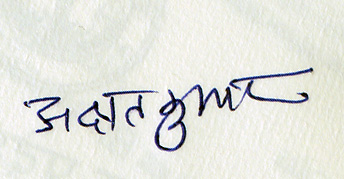 अक्षत कुमार